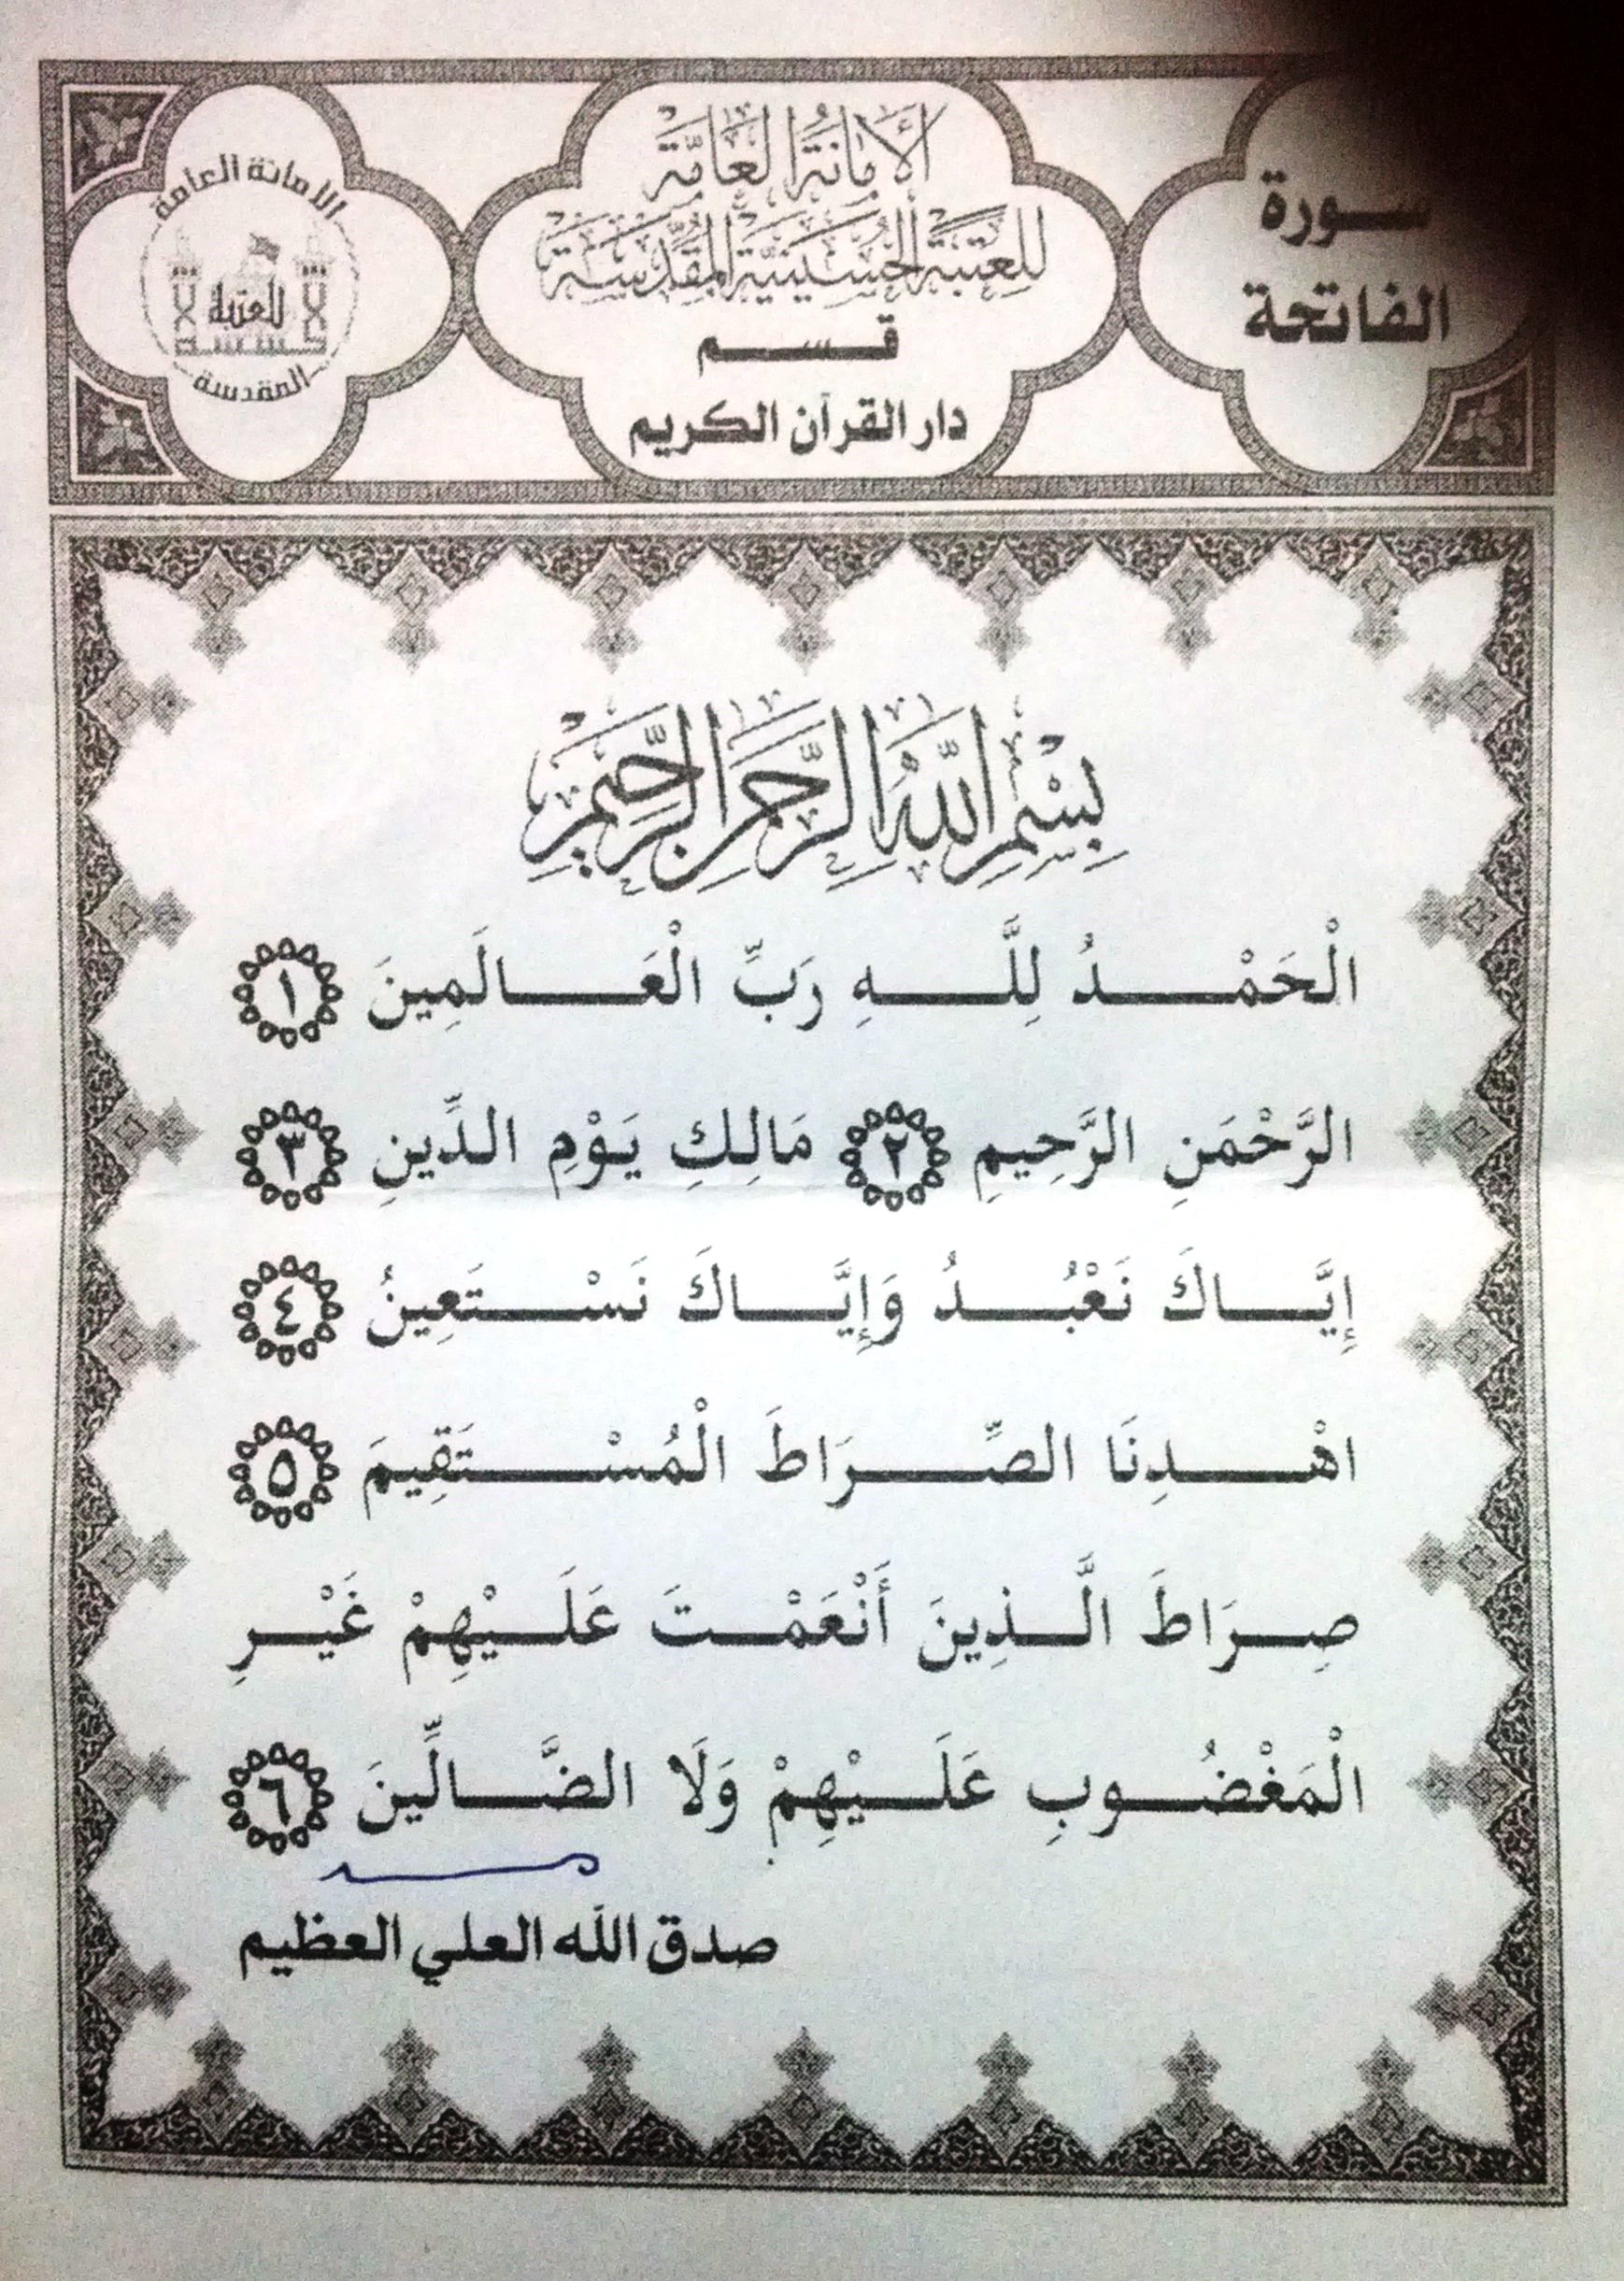 سورة
الفاتحة
الأَمَانَةُ العَامَّة
لِلعَتَبَةِ الحُسَيْنِيَّةِ المُقَدَّسَة
قـســم
دار القرآن الكريم
الأمانة العامة
للعتبة
المقدسة
بِسْمِ اللَّهِ الرَّحْمَنِ الرَّحِيمِ
الْحَمْدُ لِلَّهِ رَبِّ الْعَالَمِينَ ١
الرَّحْمَنِ الرَّحِيمِ ٢ مَالِكِ يَوْمِ الدِّينِ ٣
إِيَّاكَ نَعْبُدُ وَإِيَّاكَ نَسْتَعِينُ ٤
اهْدِنَا الصِّرَاطَ الْمُسْتَقِيمَ ٥
صِرَاطَ الَّذِينَ أَنْعَمْتَ عَلَيْهِمْ غَيْرِ
الْمَغْضُوبِ عَلَيْهِمْ وَلَا الضَّالِّينَ ٦
صدق الله العلي العظيم